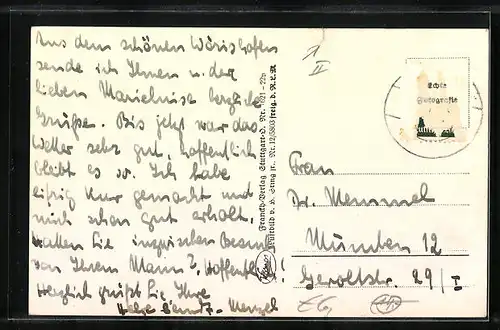 Aus dem schönen Wörishofen
sende ich Ihnen u. der
lieben Marieluise herzliche
Grüße. Bis jetzt war das
Wetter sehr gut, hoffentlich
bleibt es so. Ich habe
eifrig Kur gemacht und
mich schon gut erholt.
Hatten Sie inzwischen Besuch
von Ihrem Mann? Hoffentlich!
Herzlich grüßt Sie Ihre
Menzel
Franckh-Verlag Stuttgart-O. Nr. 1621-22b
Luftbild v. Nr. 12/5803 freig. d. R.L.M.
II
Echte
Fotografie
Frau
Dr. Memmel
München 12
Geroltstr. 29/I